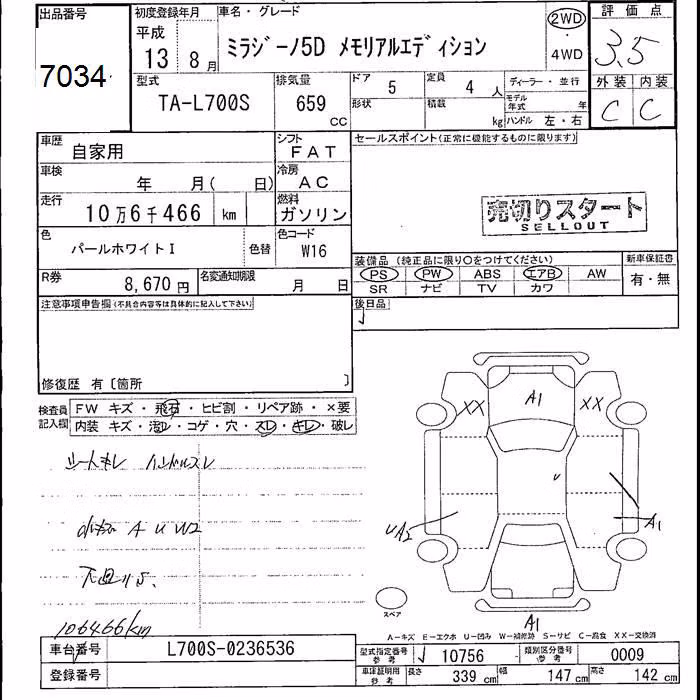 出品番号 初度登録年月 車名・グレード 評価点
7034 平成 13 8月 ミラジーノ5D メモリアルエディション 2WD・4WD 3.5
型式 排気量 ドア 5 定員 4人 ディーラー・並行 外装 内装
TA-L700S 659 CC 形状 積載 kg モデル年式 年 ハンドル 左・右 C C
車歴 自家用 シフト FAT セールスポイント(正常に機能するものに限ります)
車検 年 月( 日) 冷房 AC
走行 10万6千466 km 燃料 ガソリン 売切りスタート
SELLOUT
色 パールホワイトI 色替 色コード W16
装備品 (純正品に限り〇をつけてください) 新車保証書
R券 8,670円 名変通知期限 月 日 PS PW ABS エアB AW 有・無
SR ナビ TV カワ
注意事項申告欄(不具合内容等は具体的に記入して下さい) 後日品
修復歴 有〔箇所 〕
検査員記入欄 FW キズ・飛石・ヒビ割・リペア跡・×要
内装 キズ・汚レ・コゲ・穴・スレ・キレ・破レ
シートキレ ハンドルスレ
A U W2
106466km
XX A1 XX
U
UA2 A1
スペア A1
A-キズ E-エクボ U-凹み W-補修跡 S-サビ C-腐食 XX-交換済
車台番号 L700S-0236536 型式指定番号 参考 10756 類別区分番号 参考 0009
登録番号 車庫証明用 参考 長さ 339 cm 幅 147 cm 高さ 142 cm